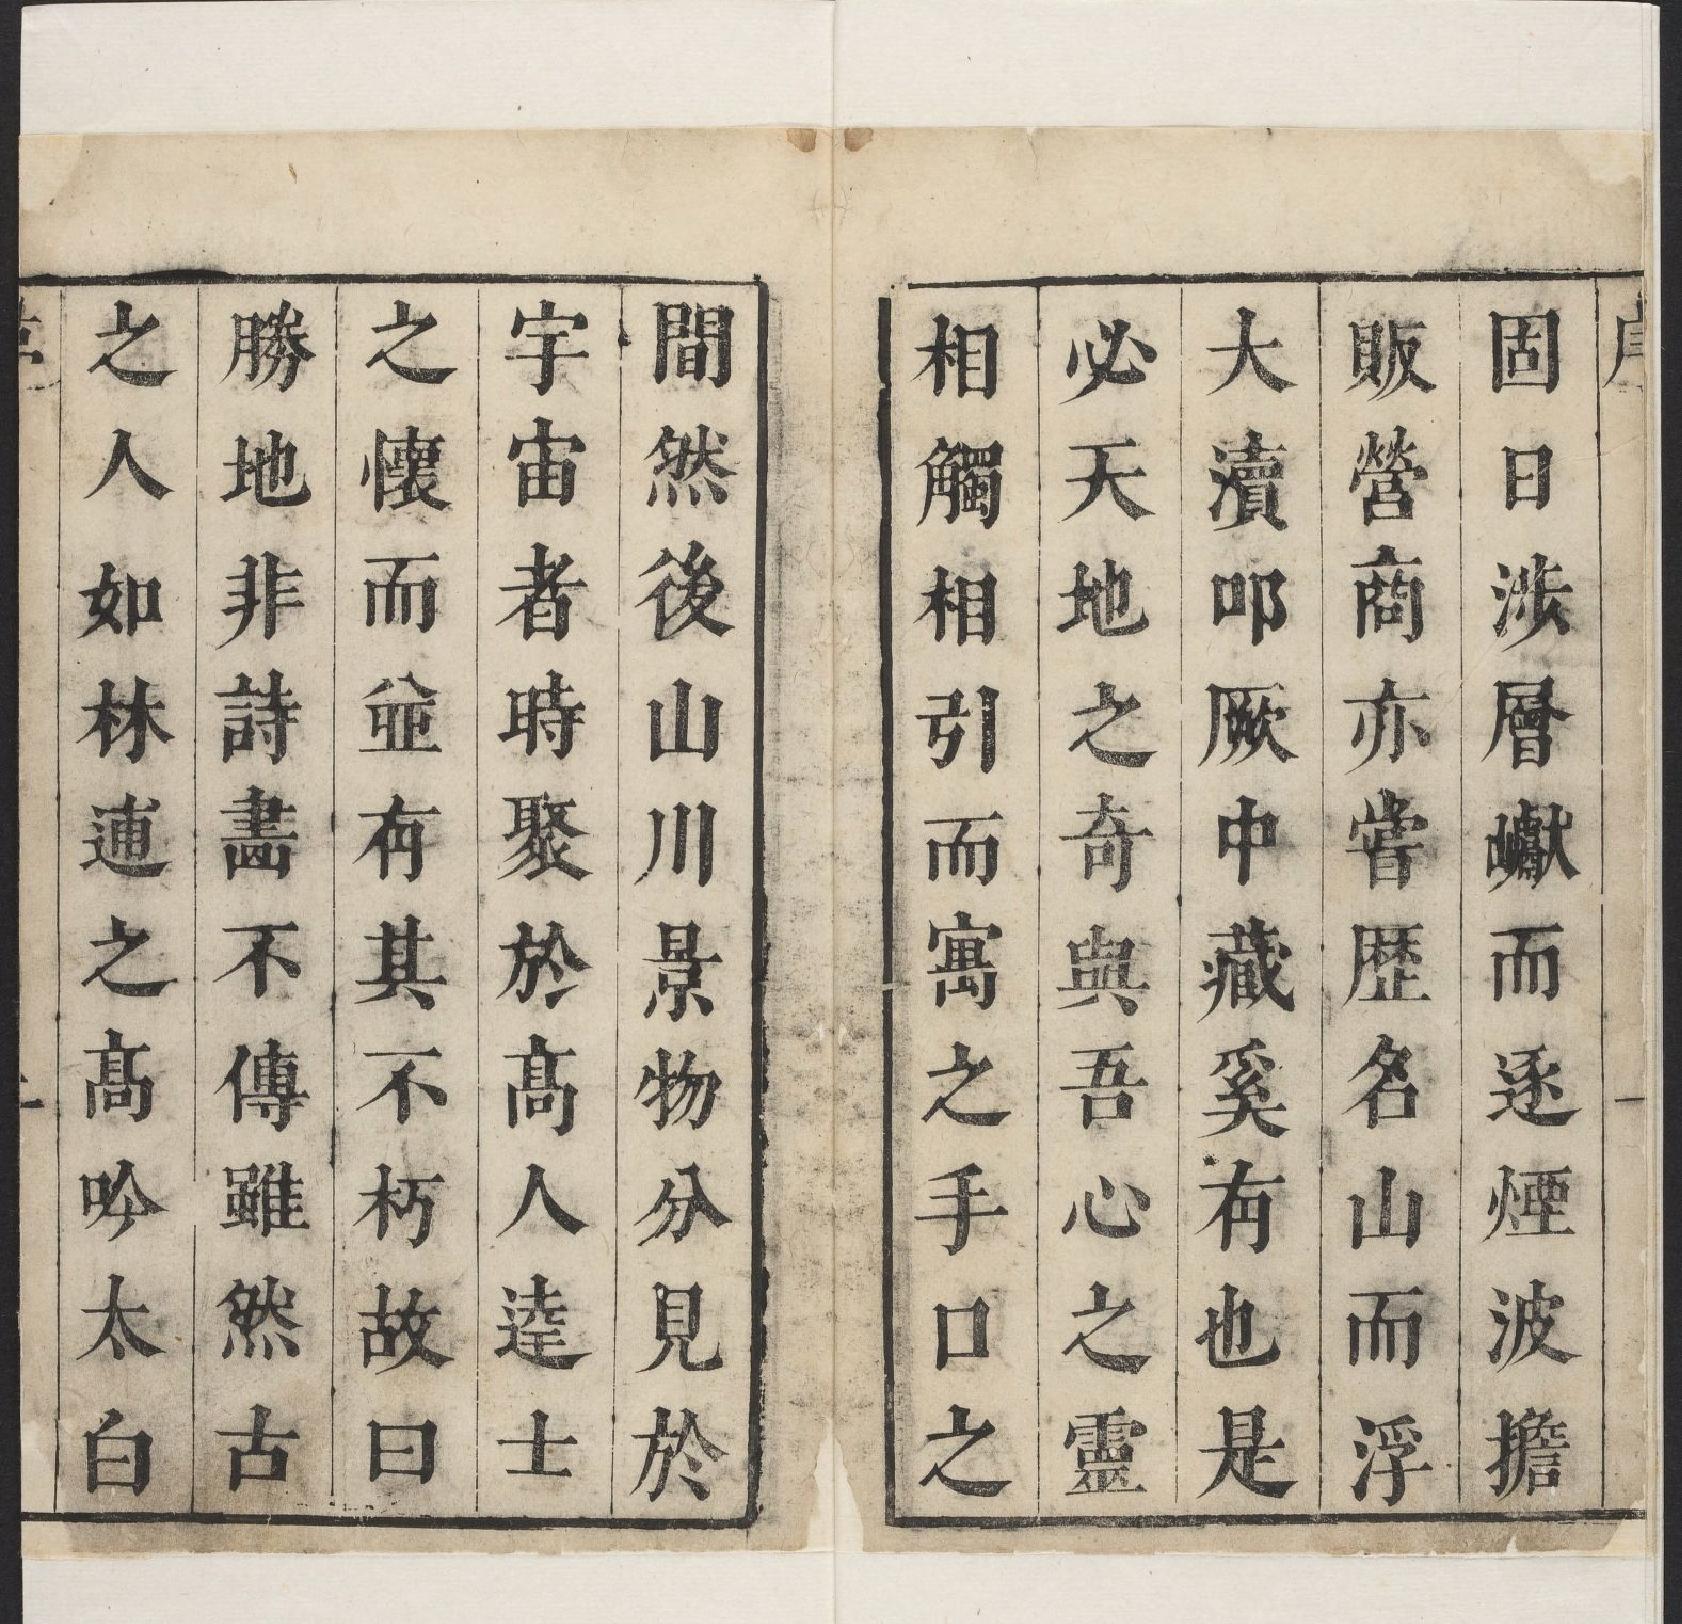 固日涉層巘而逐煙波擔
販營商亦嘗歴名山而浮
大瀆叩厥中藏奚有也是
必天地之奇與吾心之靈
相觸相引而寓之手口之
間然後山川景物分見於
宇宙者時聚於髙人逹士
之懷而並有其不朽故曰
勝地非詩畫不傳雖然古
之人如林逋之髙吟太白